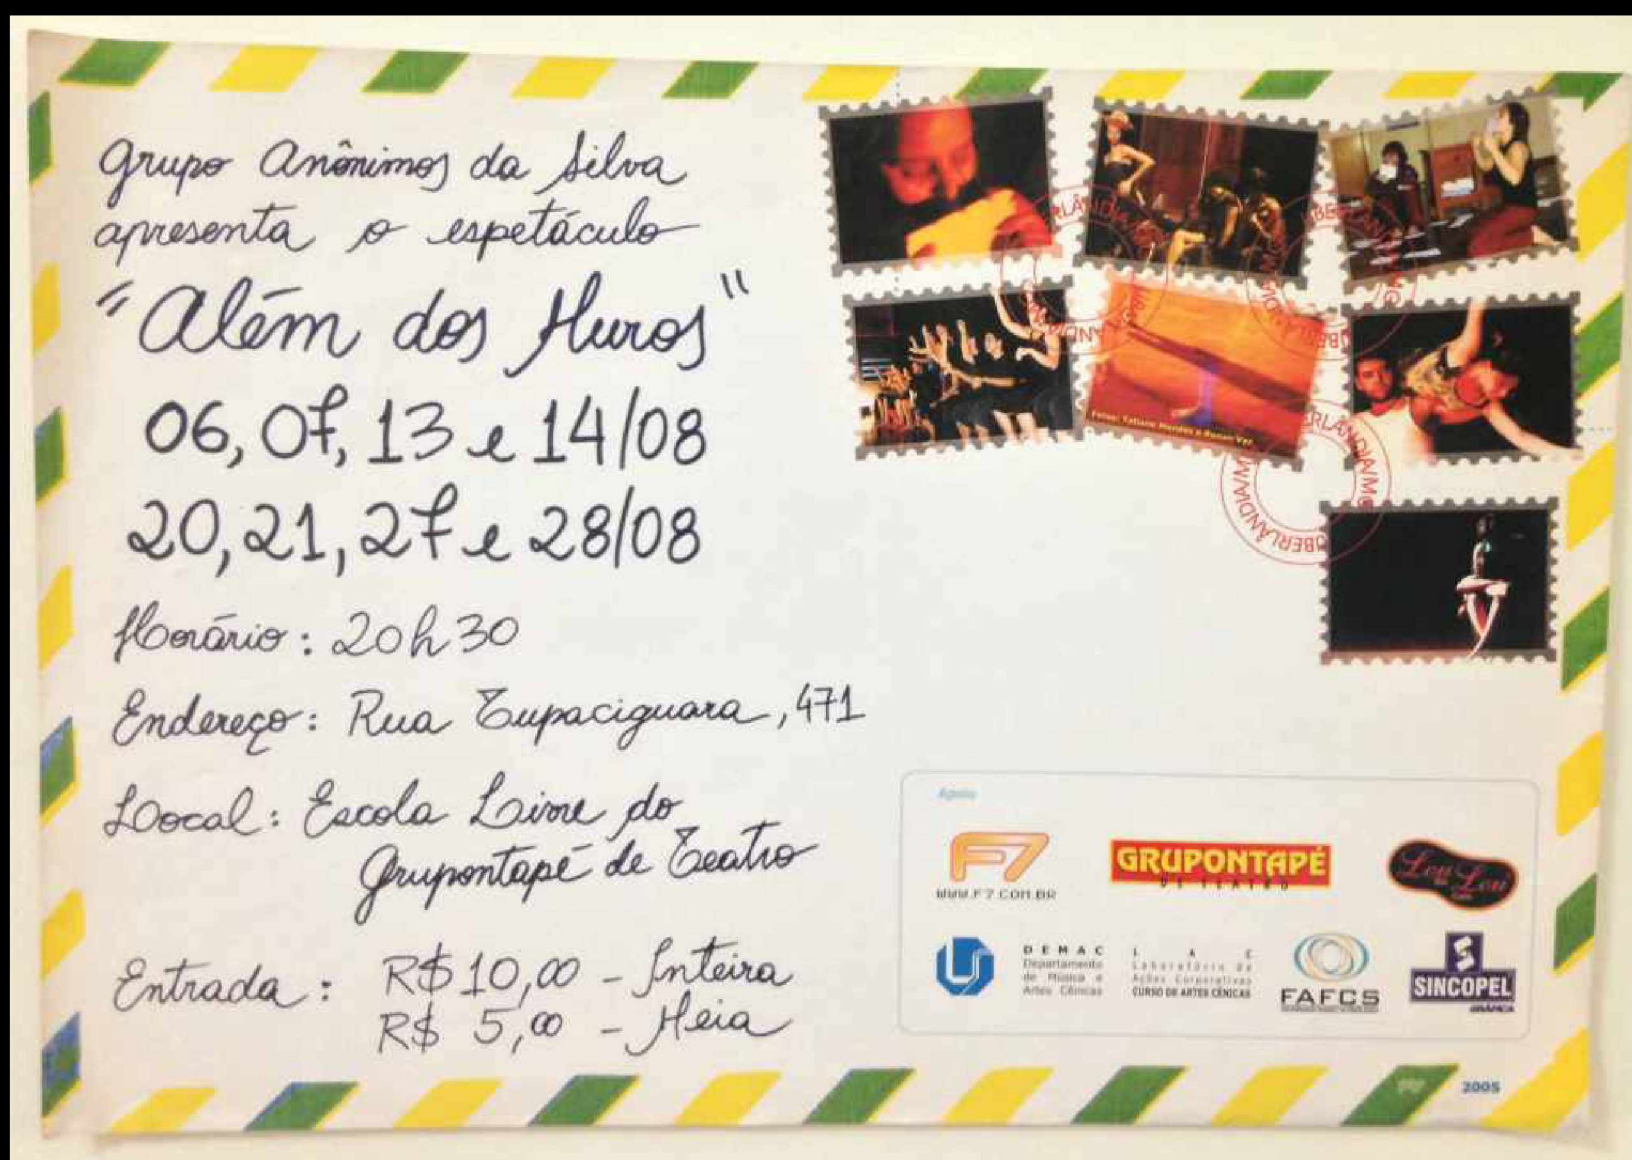 Grupo Anônimos da Silva
apresenta o espetáculo
"Além dos Muros"
06, 07, 13 e 14/08
20, 21, 27 e 28/08
Horário: 20h30
Endereço: Rua Tupaciguara, 471
Local: Escola Livre do
Grupontapé de Teatro
Entrada: R$ 10,00 - Inteira
R$ 5,00 - Meia
UBERLÂNDIA/MG
Fotos: Tatiane Mendes e Ronan Vaz
Apoio
F7
WWW.F7.COM.BR
GRUPONTAPÉ
DE TEATRO
Lou Lou
DEMAC
Departamento
de Música e
Artes Cênicas
LAC
Laboratório de
Ações Corporativas
CURSO DE ARTES CÊNICAS
FAFCS
SINCOPEL
GRÁFICA
2005